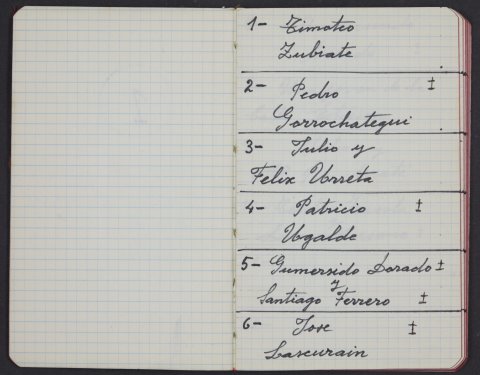 1- Timoteo
Zubiate
2- Pedro ±
Gorrochategui
3- Julio y
Felix Urreta
4- Patricio ±
Ugalde
5- Gumersido Dorado ±
y
Santiago Ferrero ±
6- Jose ±
Lascurain